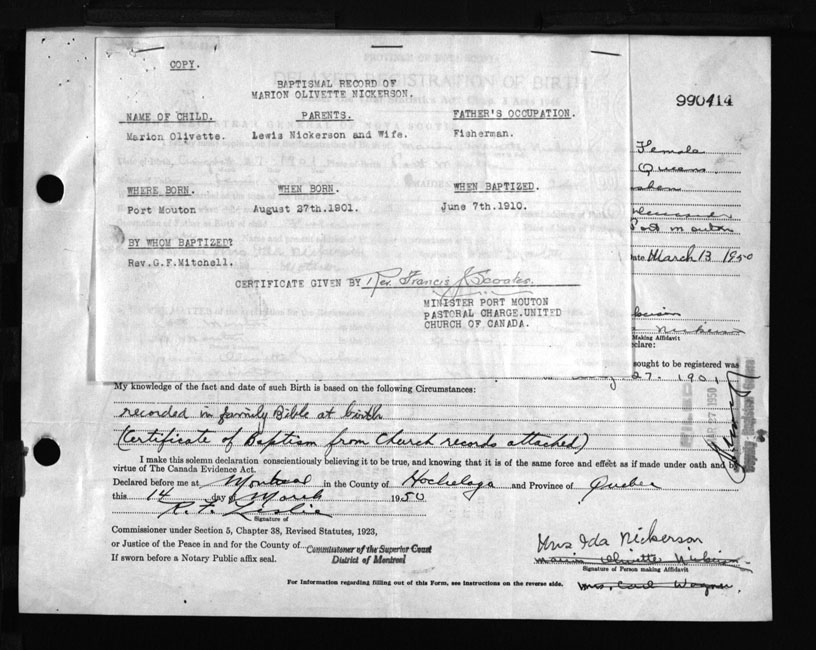 COPY.
BAPTISMAL RECORD OF
MARION OLIVETTE NICKERSON.
NAME OF CHILD. PARENTS. FATHER'S OCCUPATION.
Marion Olivette. Lewis Nickerson and Wife. Fisherman.
WHERE BORN. WHEN BORN. WHEN BAPTIZED.
Port Mouton August 27th.1901. June 7th.1910.
BY WHOM BAPTIZED?
Rev.G.F.Mitchell.
CERTIFICATE GIVEN BY Rev. Francis J.
MINISTER PORT MOUTON
PASTORAL CHARGE.UNITED
CHURCH OF CANADA.
990414
Female
Queens
Port Mouton
ate March 13 1950
Making Affidavit
clare:
sought to be registered was
27. 1901
My knowledge of the fact and date of such Birth is based on the following Circumstances:
recorded in family Bible at birth
(Certificate of Baptism from Church records attached)
I make this solemn declaration conscientiously believing it to be true, and knowing that it is of the same force and effect as if made under oath and by
virtue of The Canada Evidence Act.
Declared before me at Montreal in the County of Hochelaga and Province of Quebec
this 14 day of March 1950
R. F. Leslie
Signature of
Commissioner under Section 5, Chapter 38, Revised Statutes, 1923,
or Justice of the Peace in and for the County of
Commissioner of the Superior Court
District of Montreal
If sworn before a Notary Public affix seal.
Mrs Ida Nickerson
Signature of Person making Affidavit
For Information regarding filling out of this Form, see Instructions on the reverse side.
MAR 27 1950